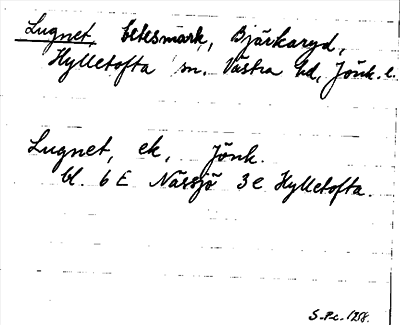 Lugnet, betesmark, Bjärkaryd,
Hylletofta sn. Västra hd, Jönk. l.
Lugnet, ek, Jönk.
bl. 6 E Nässjö 3 e Hylletofta.
S-Pc. 1258.